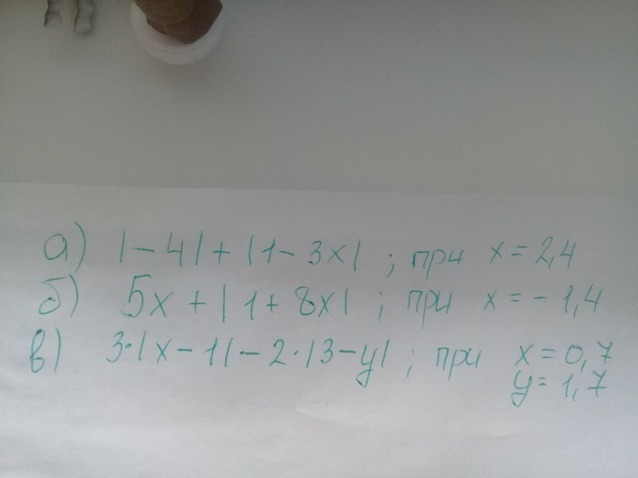 а) |-4|+|1-3x| ; при x=2,4
б) 5x+|1+8x| ; при x=-1,4
в) 3·|x-1|-2·|3-y| ; при x=0,7
y=1,7